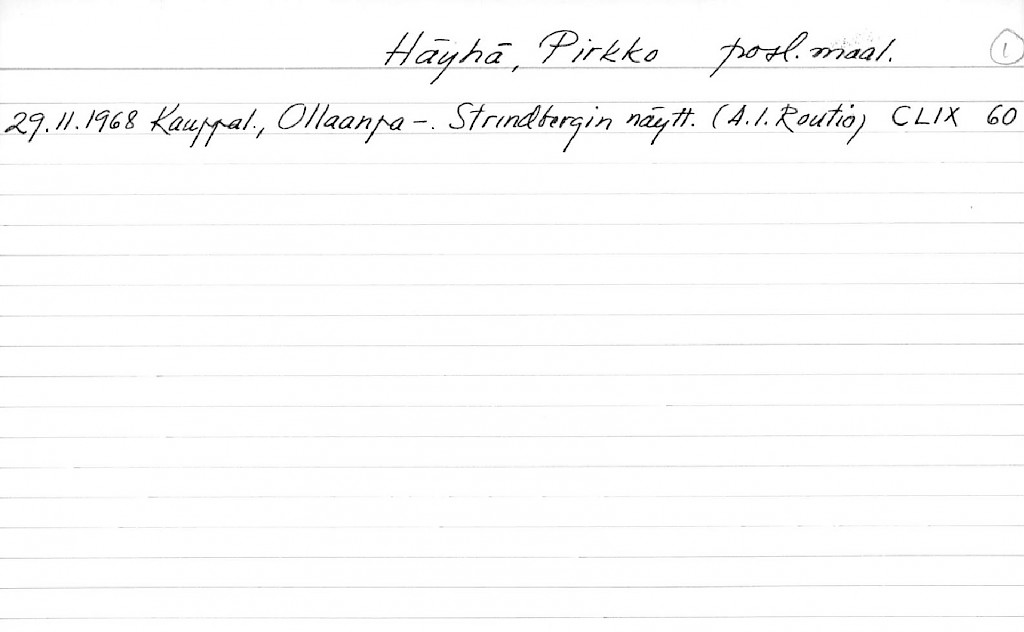 Häyhä, Pirkko posl. maal. 1
29.11.1968 Kauppal., Ollaanpa -. Strindbergin näytt. (A.I. Routio) CLIX 60